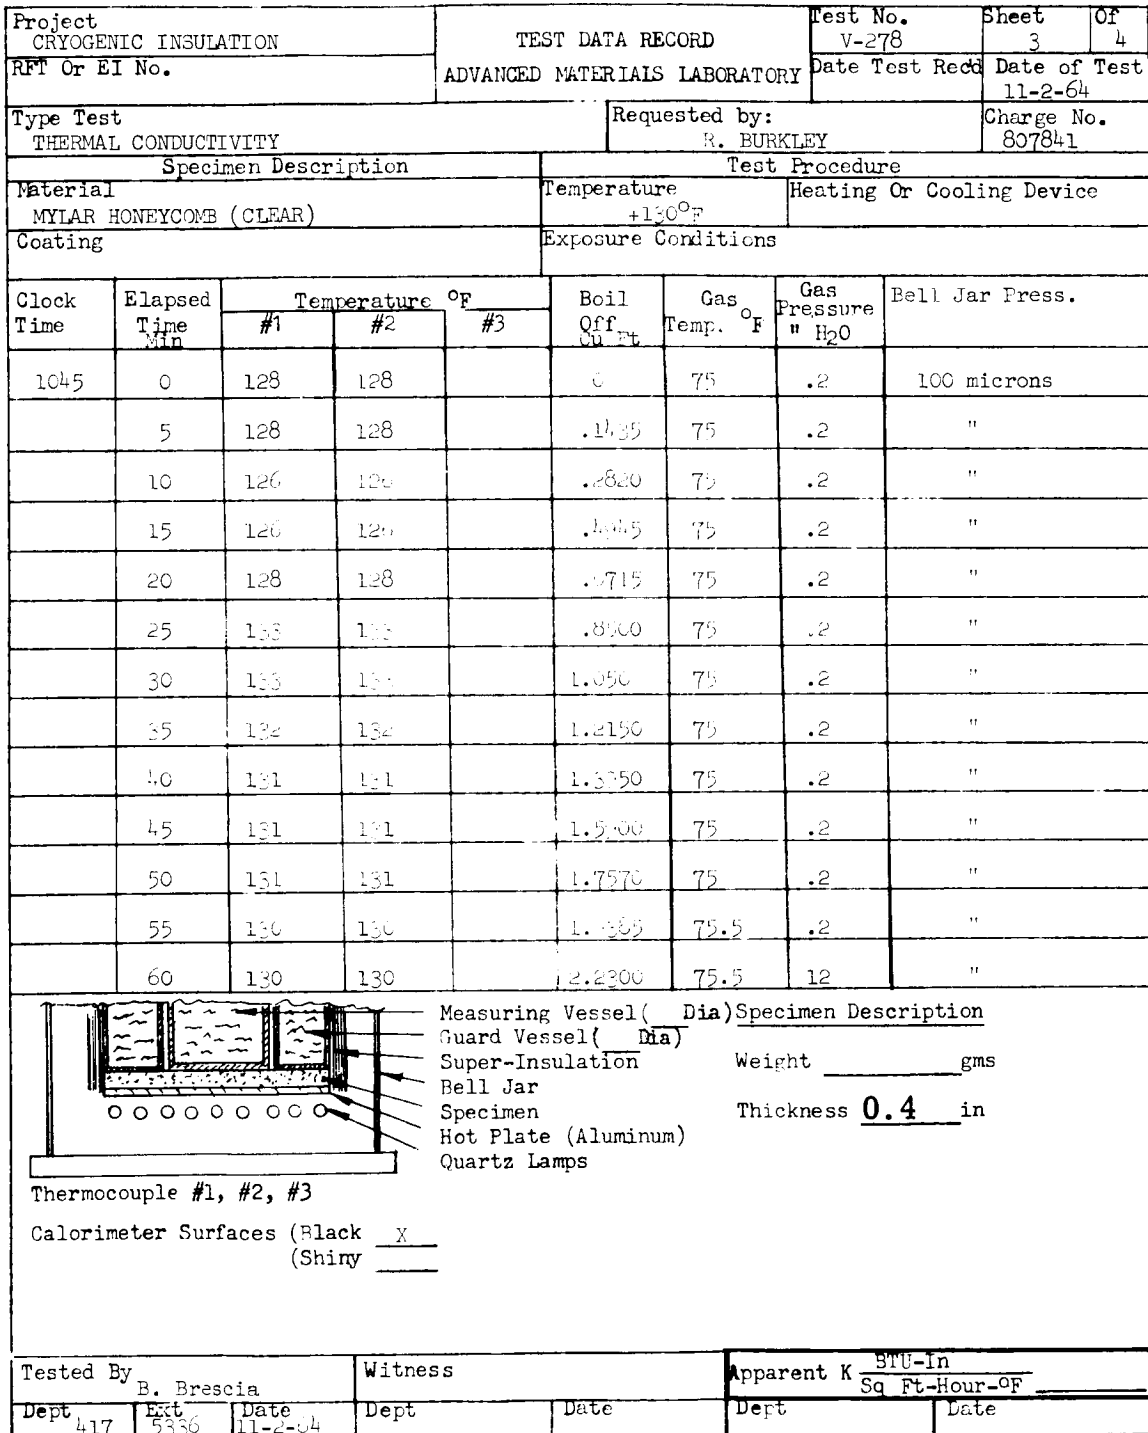 Project CRYOGENIC INSULATION
TEST DATA RECORD
ADVANCED MATERIALS LABORATORY
Test No. V-278
Sheet 3 Of 4
RFT Or EI No.
Date Test Recd
Date of Test 11-2-64
Type Test THERMAL CONDUCTIVITY
Requested by: R. BURKLEY
Charge No. 807841
Specimen Description
Test Procedure
Material MYLAR HONEYCOMB (CLEAR)
Temperature +130°F
Heating Or Cooling Device
Coating
Exposure Conditions
Clock Time | Elapsed Time Min | Temperature °F #1 | #2 | #3 | Boil Off Cu Ft | Gas Temp. °F | Gas Pressure " H2O | Bell Jar Press.
1045 0 128 128 0 75 .2 100 microns
5 128 128 .1435 75 .2 "
10 126 126 .2820 75 .2 "
15 126 126 75 .2 "
20 128 128 75 .2 "
25 133 133 75 .2 "
30 133 133 75 .2 "
35 132 132 1.2150 75 .2 "
40 131 131 75 .2 "
45 131 131 75 .2 "
50 131 131 1.7570 75 .2 "
55 130 130 75.5 .2 "
60 130 130 2.2300 75.5 12 "
Measuring Vessel( Dia)
Guard Vessel( Dia)
Super-Insulation
Bell Jar
Specimen
Hot Plate (Aluminum)
Quartz Lamps
Specimen Description
Weight gms
Thickness 0.4 in
Thermocouple #1, #2, #3
Calorimeter Surfaces (Black X
(Shiny
Tested By B. Brescia
Witness
Apparent K BTU-In
Sq Ft-Hour-°F
Dept 417 Ext 5336 Date 11-2-64
Dept Date
Dept Date